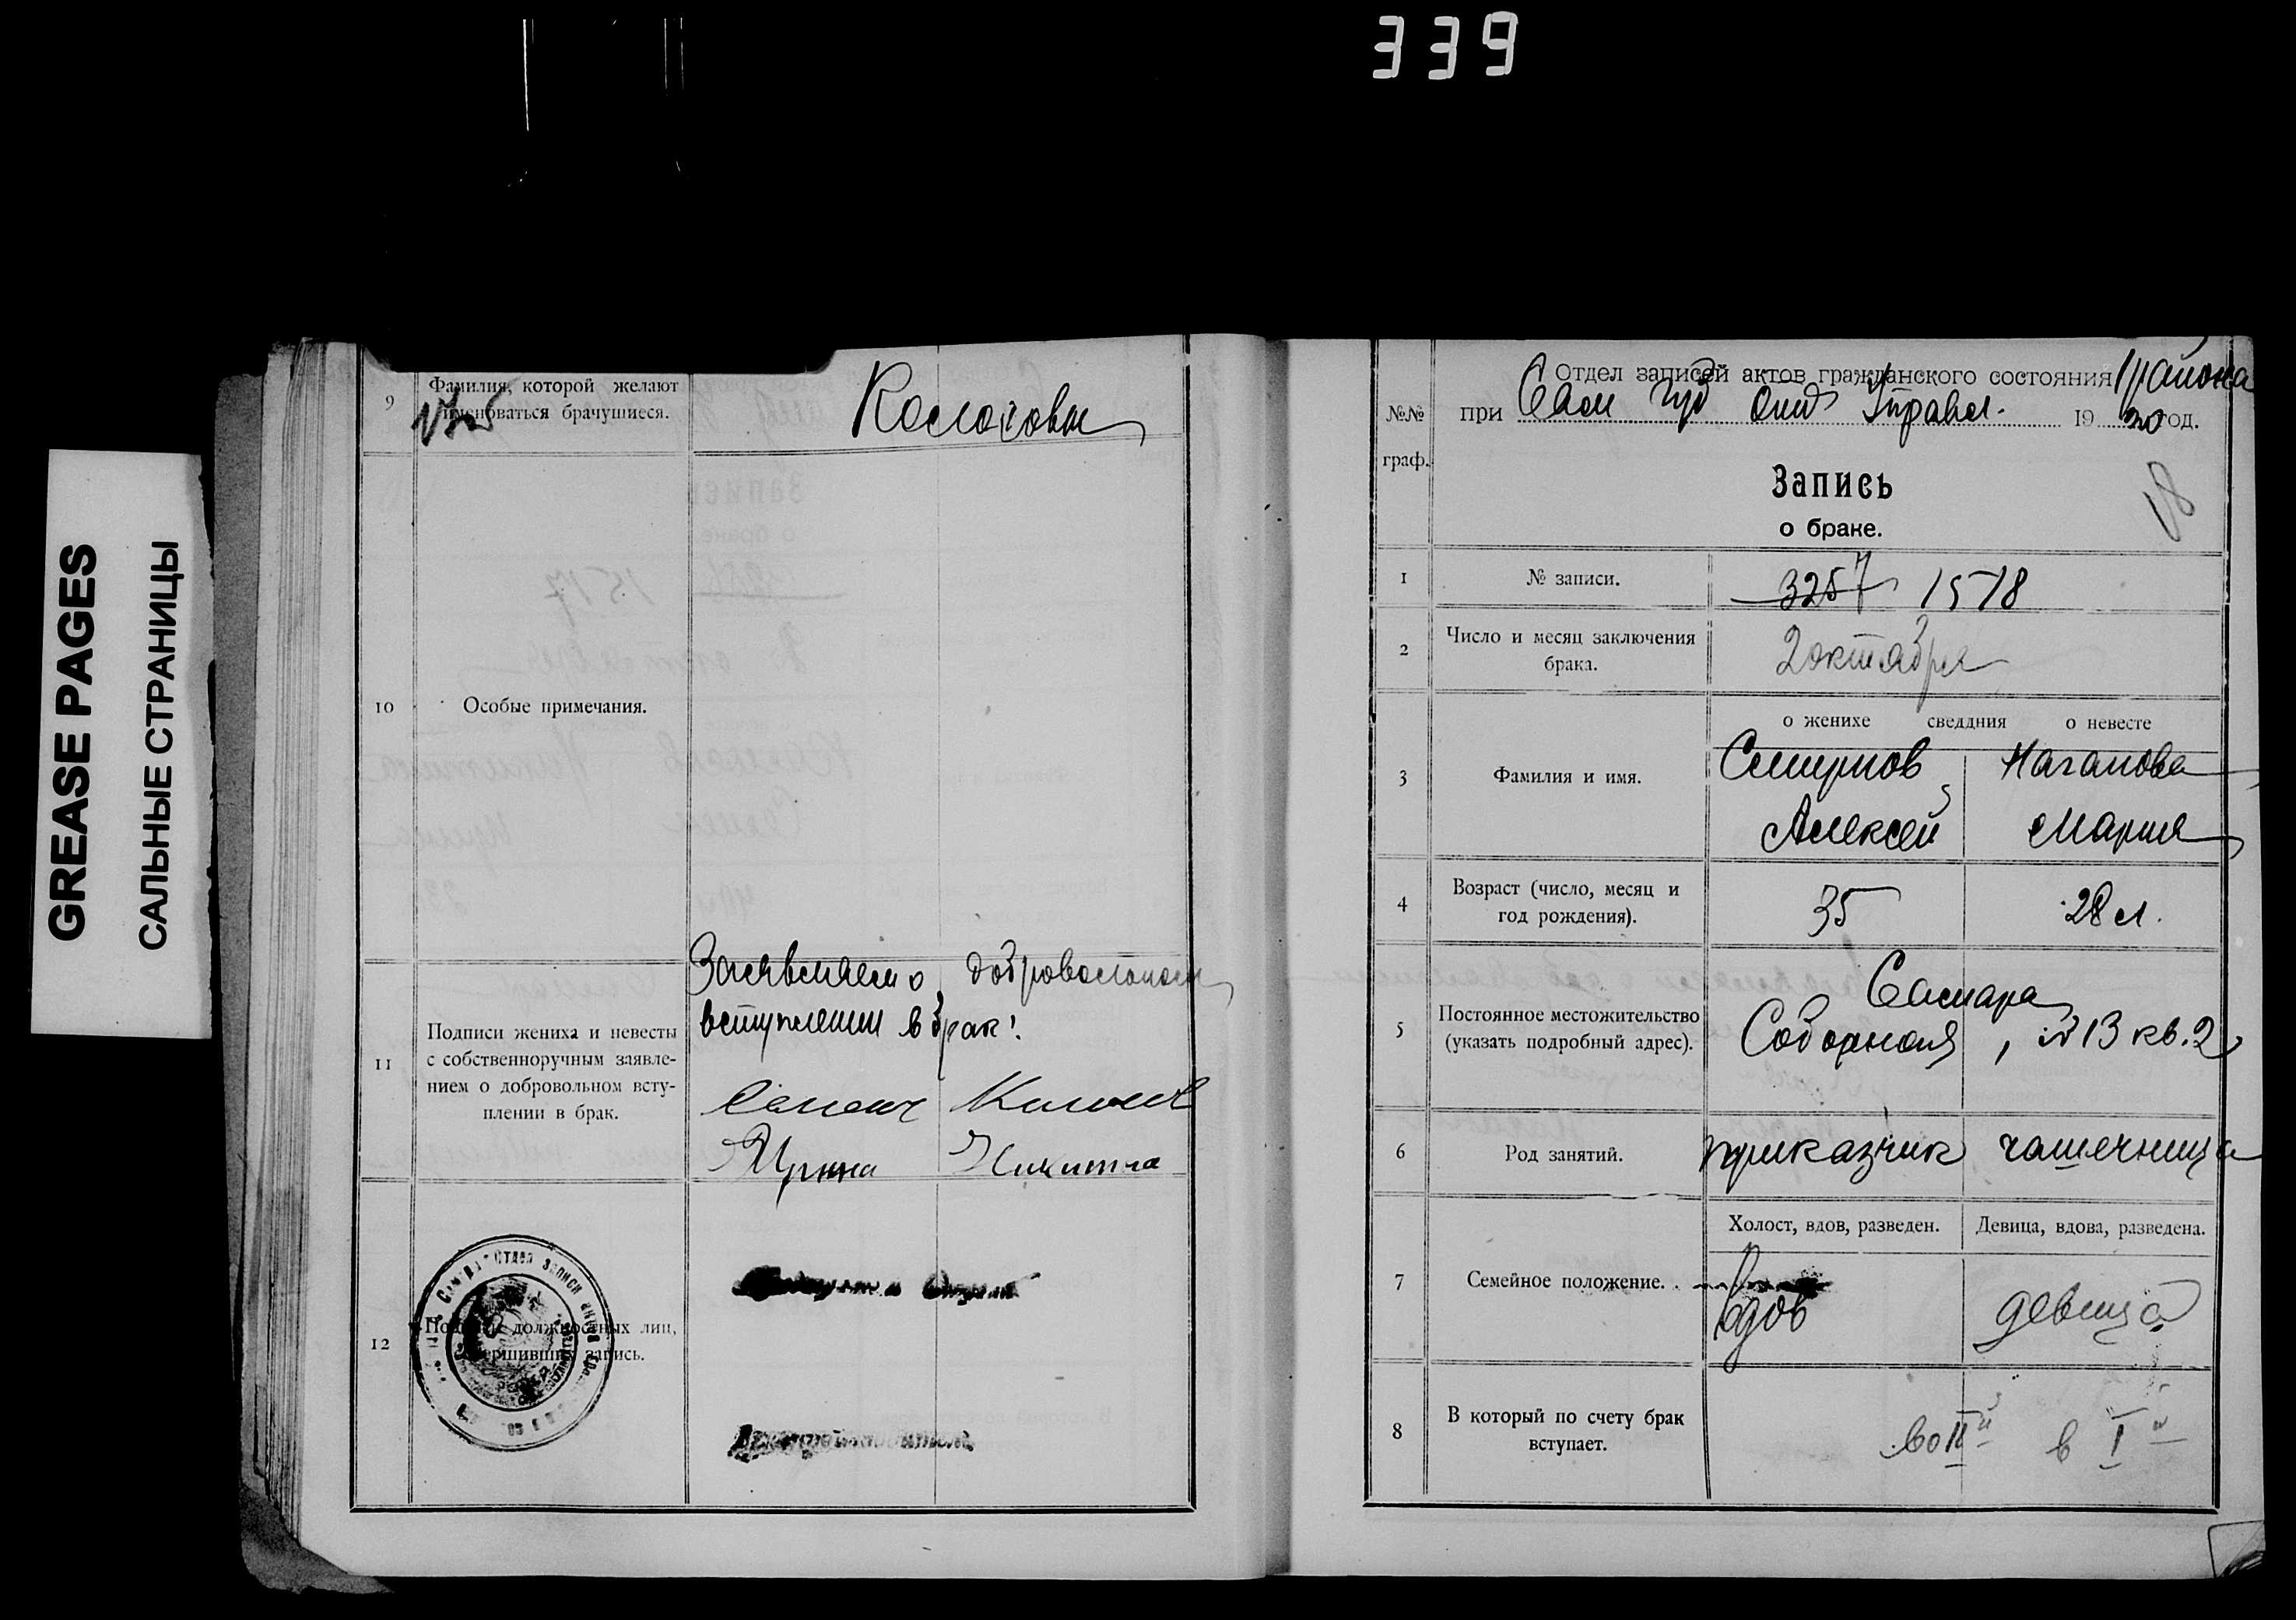 339
GREASE PAGES
САЛЬНЫЕ СТРАНИЦЫ
9
Фамилия, которой желают
именоваться брачущиеся.
10
Особые примечания.
11
Подписи жениха и невесты
с собственноручным заявле-
нием о добровольном всту-
плении в брак.
Заявляем о добровольном
вступлении в брак!
Ирина Никитина
12
Подписи должностных лиц,
совершивших запись.
№№
граф.
Отдел записей актов гражданского состояния 1 района
при Сам Губ Отд Управл. 1920 год.
18
Запись
о браке.
1
№ записи.
3257 1518
2
Число и месяц заключения
брака.
2 октября
о женихе сведдния о невесте
3
Фамилия и имя.
Смирнов
Алексей
Наганова
Мария
4
Возраст (число, месяц и
год рождения).
35
28 л.
5
Постоянное местожительство
(указать подробный адрес).
Самара
Соборная, № 13 кв. 2
6
Род занятий.
приказчик
чашечница
7
Семейное положение.
Холост, вдов, разведен.
Девица, вдова, разведена.
вдов
девица
8
В который по счету брак
вступает.
во II й
в I й